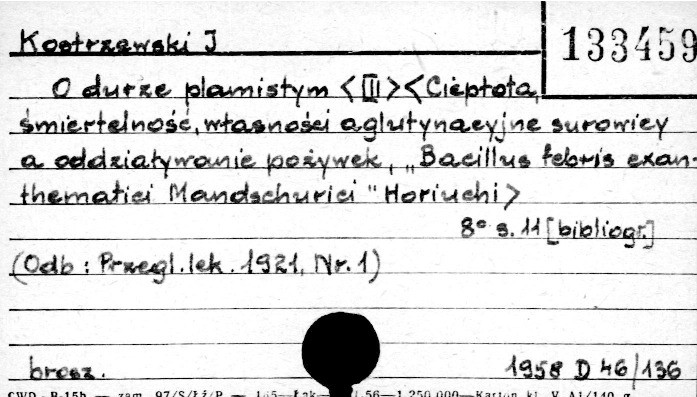 Kostrzewski J
133459
O durze plamistym <III> <Ciepłota,
śmiertelność, własności aglutynacyjne surowicy
a oddziaływanie pożywek, „Bacillus febris exan-
thematici Mandschurici" Horiuchi>
8° s. 11 [bibliogr.]
(Odb: Przegl. lek. 1921, Nr. 1)
brosz.
1958 D 46/136
CWD - B-15b — zam. 97/S/Łź/P — 56—1.250.000—Karton kl. V A1/140 g